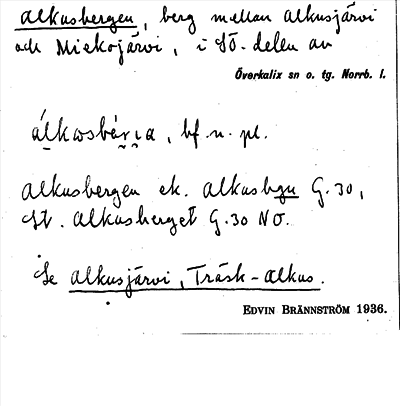 Alkusbergen, berg mellan Alkusjärvi
och Miekojärvi, i SÖ. delen av
Överkalix sn o. tg. Norrb. l.
álkusbä́rja, bf. n. pl.
Alkusbergen ek. Alkusbgn G. 30,
St. Alkusberget G. 30 NO.
Se Alkusjärvi, Träsk-Alkus.
EDVIN BRÄNNSTRÖM 1936.